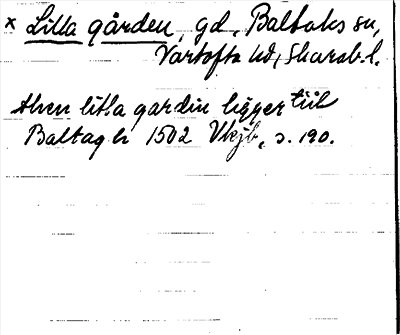 × Lilla gården, gd, Baltaks sn,
Vartofta hd, Skarab. l.
then litla gardin ligger till
Baltag h 1502 Vkjb, s. 190.